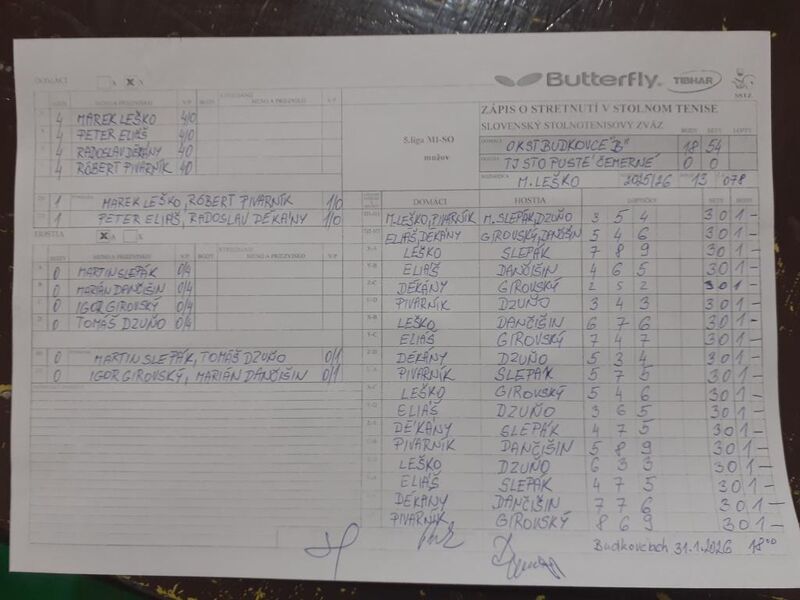 DOMÁCI A X
Butterfly TIBHAR SSTZ
ZÁPIS O STRETNUTÍ V STOLNOM TENISE
SLOVENSKÝ STOLNOTENISOVÝ ZVÄZ
5.liga MI-SO
mužov
BODY SETY LOPTY
OKST BUDKOVCE "B" 18 54
TJ STO PUSTÉ ČEMERNÉ 0 0
M. LEŠKO 2025/26 13 078
MENO A PRIEZVISKO V/P BODY MENO A PRIEZVISKO V/P
4 MAREK LEŠKO 4/0
4 PETER ELIÁŠ 4/0
4 RADOSLAV DÉKÁNY 4/0
4 RÓBERT PIVARNÍK 4/0
1 MAREK LEŠKO, RÓBERT PIVARNÍK 1/0
1 PETER ELIÁŠ, RADOSLAV DÉKÁNY 1/0
HOSTIA X
BODY MENO A PRIEZVISKO V/P BODY MENO A PRIEZVISKO V/P
0 MARTIN SLEPÁK 0/4
0 MARIÁN DANČIŠIN 0/4
0 IGOR GIROVSKÝ 0/4
0 TOMÁŠ DZUŇO 0/4
0 MARTIN SLEPÁK, TOMÁŠ DZUŇO 0/1
0 IGOR GIROVSKÝ, MARIÁN DANČIŠIN 0/1
DOMÁCI HOSTIA LOPTIČKY SETY BODY
M. LEŠKO, PIVARNÍK M. SLEPÁK, DZUŇO 3 5 4 3 0 1 –
ELIÁŠ, DÉKÁNY GIROVSKÝ, DANČIŠIN 5 4 6 3 0 1 –
LEŠKO SLEPÁK 7 8 9 3 0 1 –
ELIÁŠ DANČIŠIN 4 6 5 3 0 1 –
DÉKÁNY GIROVSKÝ 2 5 2 3 0 1 –
PIVARNÍK DZUŇO 3 4 3 3 0 1 –
LEŠKO DANČIŠIN 6 7 6 3 0 1 –
ELIÁŠ GIROVSKÝ 7 4 7 3 0 1 –
DÉKÁNY DZUŇO 5 3 4 3 0 1 –
PIVARNÍK SLEPÁK 5 7 5 3 0 1 –
LEŠKO GIROVSKÝ 5 4 6 3 0 1 –
ELIÁŠ DZUŇO 3 6 5 3 0 1 –
DÉKÁNY SLEPÁK 4 7 5 3 0 1 –
PIVARNÍK DANČIŠIN 5 8 9 3 0 1 –
LEŠKO DZUŇO 6 3 3 3 0 1 –
ELIÁŠ SLEPÁK 4 7 5 3 0 1 –
DÉKÁNY DANČIŠIN 7 7 6 3 0 1 –
PIVARNÍK GIROVSKÝ 8 6 9 3 0 1 –
Budkovciach 31.1.2026 18⁰⁰